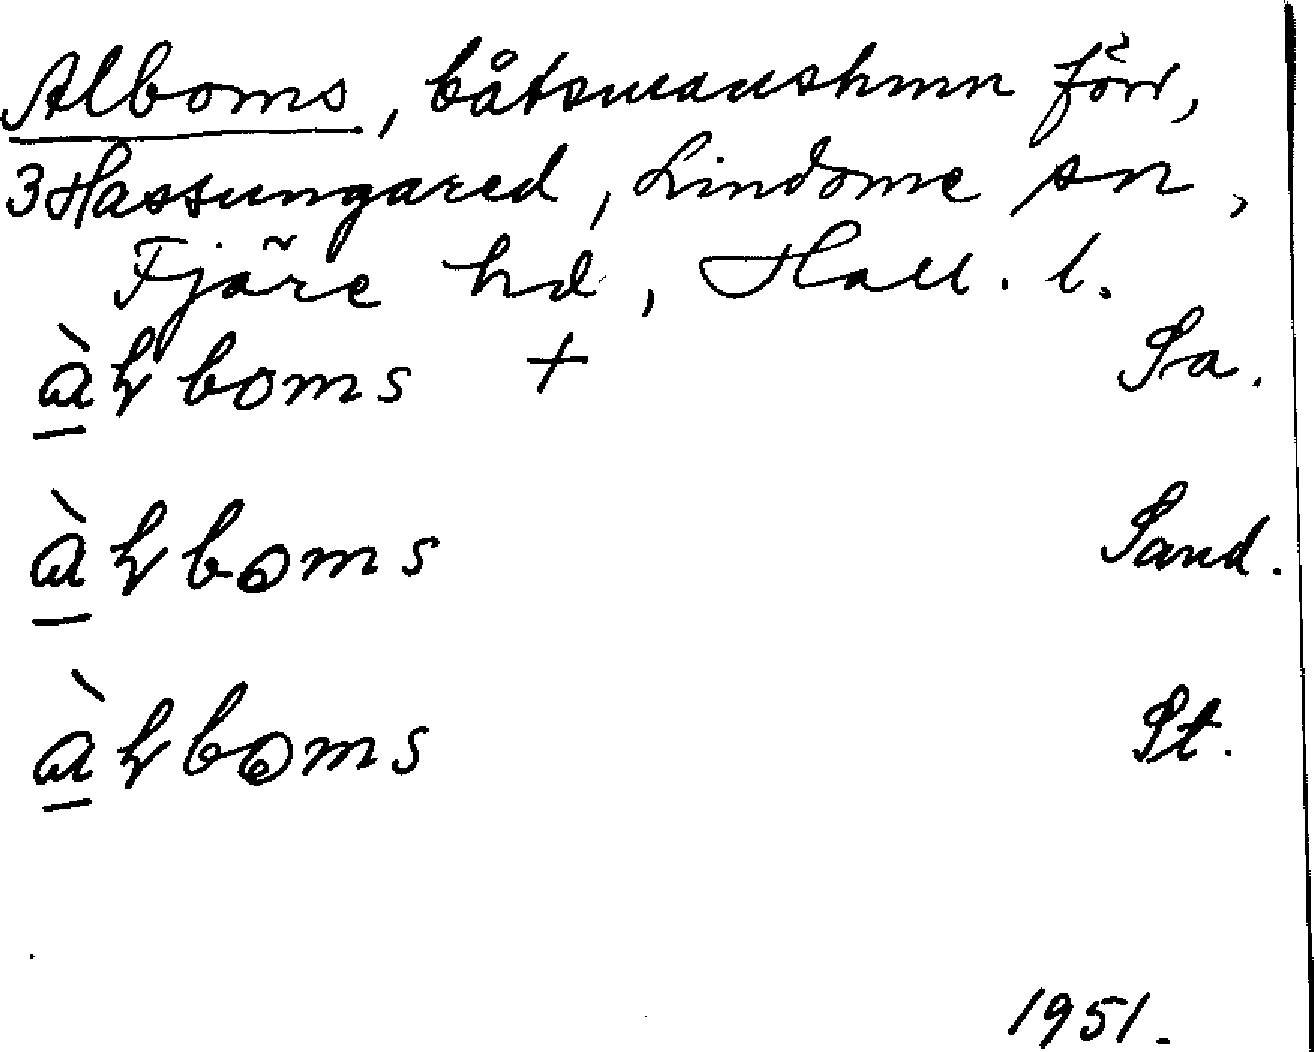 Alboms, båtsmanshmn förr,
3 Hassungared, Lindome sn,
Fjäre hd, Hall. l.
àɫboms + Sa.
àɫboms Sand.
àɫboms St.
1951.